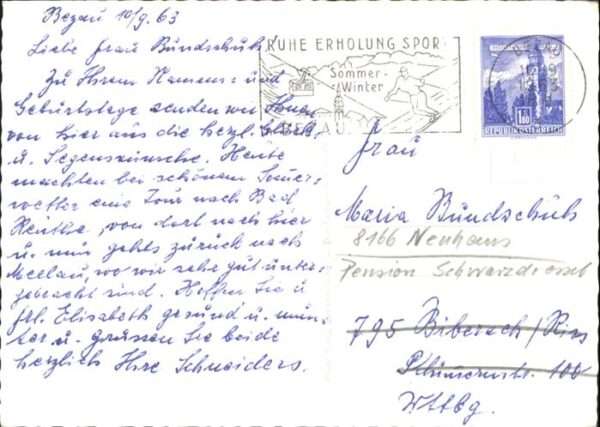 Bezau 10/9. 63
Liebe Frau Bundschuh
Zu Ihrem Namens- und
Geburtstage senden wir Ihnen
von hier aus die herzl. Glück
u. Segenswünsche. Heute
machten bei schönem
wetter eine Tour nach Bad
Reuthe, von dort nach hier
u. nun gehts zurück nach
Mellau, wo wir sehr gut unter-
gebracht sind. Hoffen Sie u
Frl. Elisabeth gesund u. mun-
ter u. grüssen Sie beide
herzlich Ihre Schneiders.
RUHE ERHOLUNG SPOR
Sommer-
Winter
BEZAU
1.80
REPUBLIK ÖSTERREICH
Frau
Maria Bundschuh
8166 Neuhaus
Pension
795 Biberach/Riss
100
Wttbg.